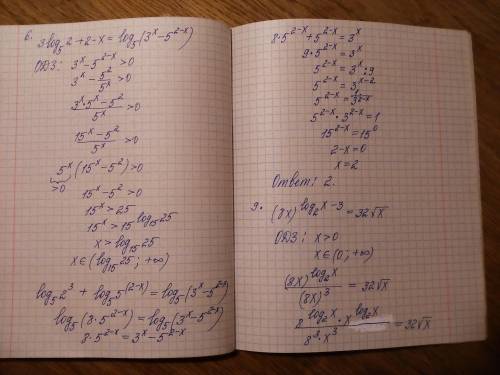 6. 3log₅2+2-x=log₅(3ˣ-5²⁻ˣ)
ОДЗ: 3ˣ-5²⁻ˣ>0
3ˣ-5²/5ˣ>0
(3ˣ·5ˣ-5²)/5ˣ>0
(15ˣ-5²)/5ˣ>0
5ˣ(15ˣ-5²)>0
>0
15ˣ-5²>0
15ˣ>25
15ˣ>15^(log₁₅25)
x>log₁₅25
x∈(log₁₅25; +∞)
log₅2³+log₅5^(2-x)=log₅(3ˣ-5²⁻ˣ)
log₅(8·5²⁻ˣ)=log₅(3ˣ-5²⁻ˣ)
8·5²⁻ˣ=3ˣ-5²⁻ˣ
8·5²⁻ˣ+5²⁻ˣ=3ˣ
9·5²⁻ˣ=3ˣ
5²⁻ˣ=3ˣ:9
5²⁻ˣ=3ˣ⁻²
5²⁻ˣ=1/3²⁻ˣ
5²⁻ˣ·3²⁻ˣ=1
15²⁻ˣ=15⁰
2-x=0
x=2
Ответ: 2.
9. (8x)^(log₂x-3)=32√x
ОДЗ: x>0
x∈(0; +∞)
(8x)^(log₂x)/(8x)³=32√x
8^(log₂x)·x^(log₂x)/(8³·x³)=32√x